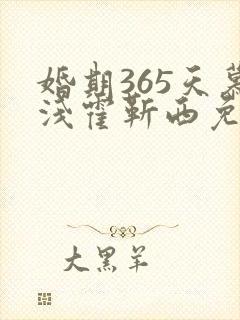 婚期365天慕
浅霍靳西免
大黑羊